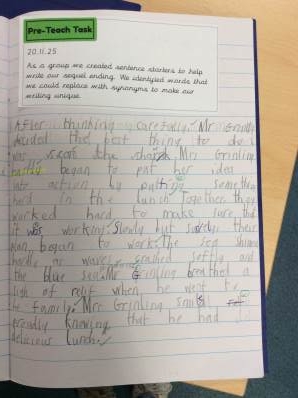 Pre-Teach Task
20.11.25
As a group we created sentence starters to help
write our sequel ending. We identified words that
we could replace with synonyms to make our
writing unique.
After thinking carefully, Mr Grinling
decided the best thing to do
was scare the shark. Mrs Grinling
hastily began to put her idea
into action by putting something
hard in the lunch. Together, they
worked hard to make sure that
it was working. Slowly but surely, their
plan began to work. The sea
waves crashed softly and
the blue sea. Mr Grinling breathed a
sigh of relif when he went to
he family. Mrs Grinling
proudly knowing that he had
delicious lunch.